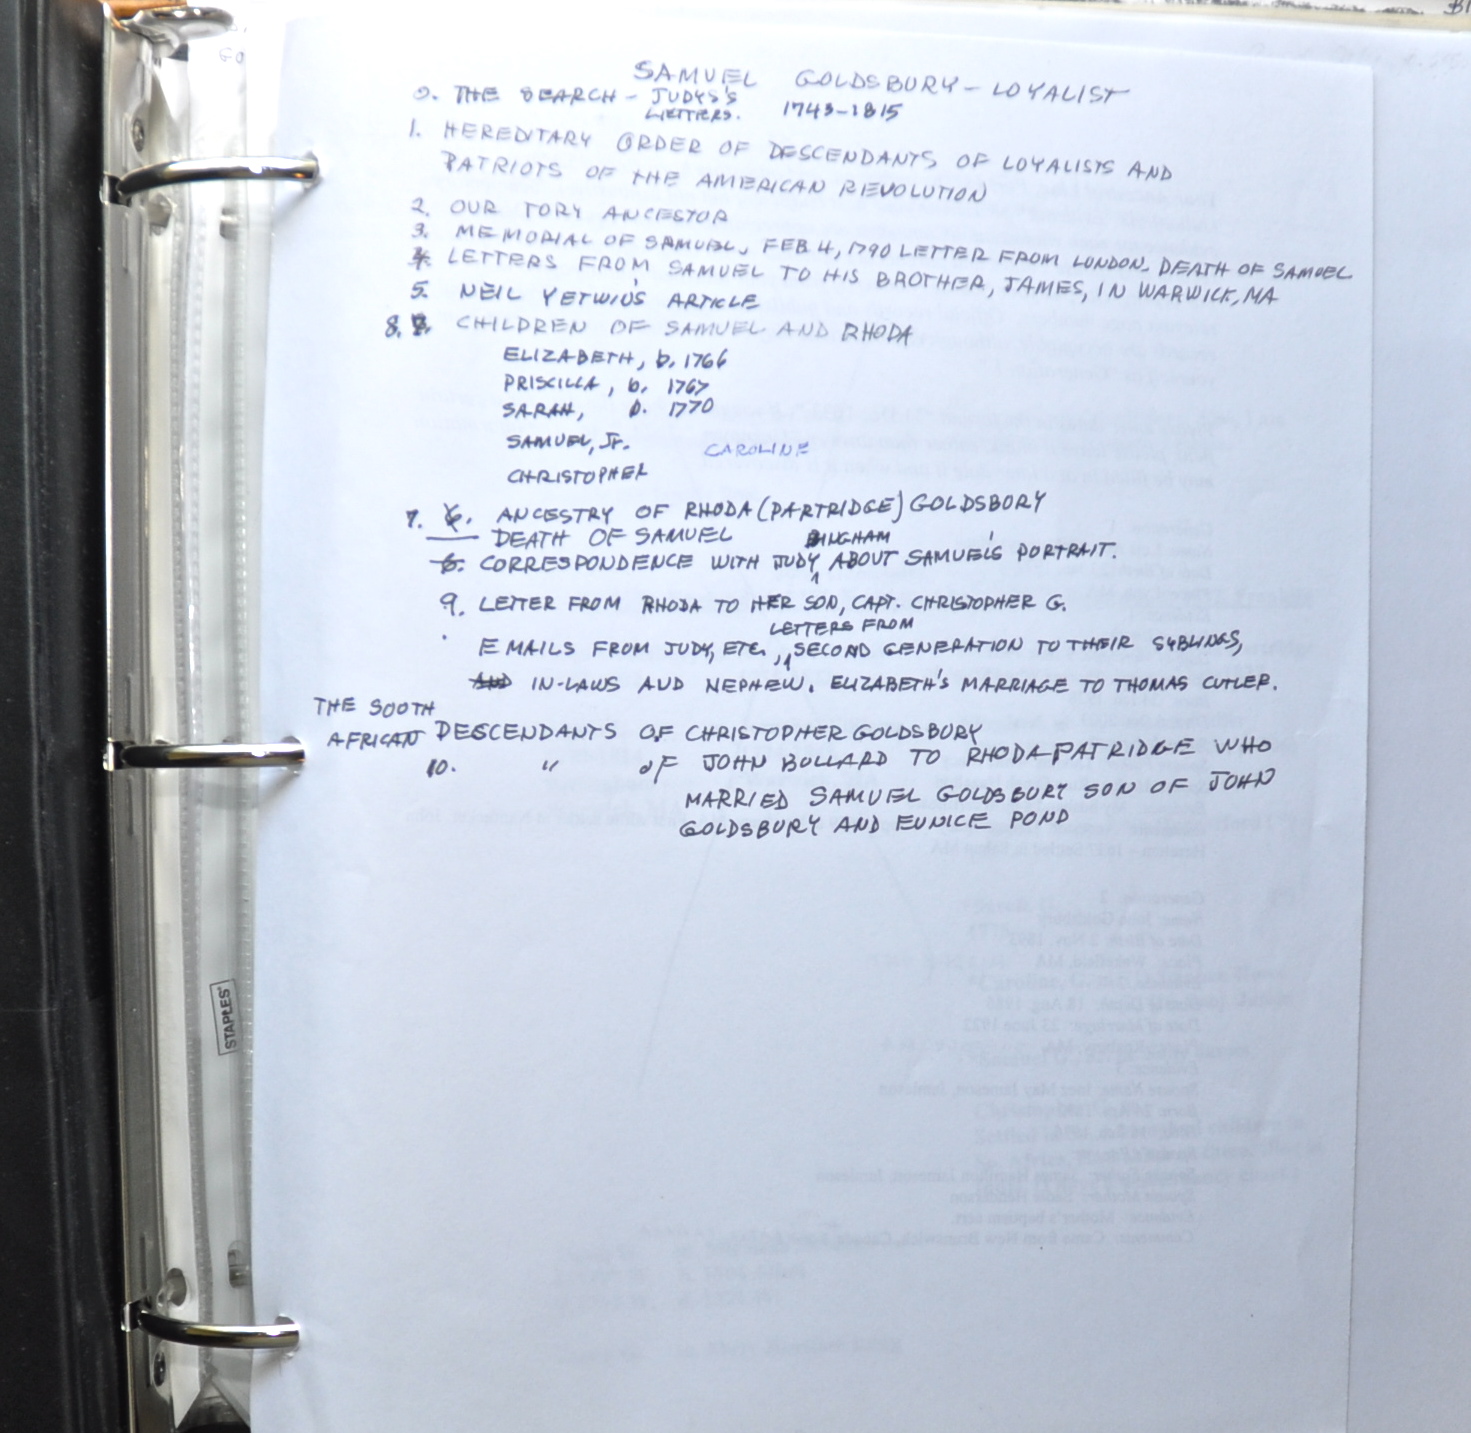 SAMUEL GOLDSBURY - LOYALIST
0. THE SEARCH - JUDYS'S
LETTERS. 1743-1815
1. HEREDITARY ORDER OF DESCENDANTS OF LOYALISTS AND
PATRIOTS OF THE AMERICAN REVOLUTION
2. OUR TORY ANCESTOR
3. MEMORIAL OF SAMUEL, FEB 4, 1790 LETTER FROM LONDON. DEATH OF SAMUEL
4. LETTERS FROM SAMUEL TO HIS BROTHER, JAMES, IN WARWICK, MA
5. NEIL YETWIN'S ARTICLE
8. CHILDREN OF SAMUEL AND RHODA
ELIZABETH, b. 1766
PRISCILLA, b. 1767
SARAH, b. 1770
SAMUEL, Jr. CAROLINE
CHRISTOPHER
7. 6. ANCESTRY OF RHODA (PARTRIDGE) GOLDSBORY
DEATH OF SAMUEL
6. CORRESPONDENCE WITH JUDY BINGHAM ABOUT SAMUEL'S PORTRAIT.
9. LETTER FROM RHODA TO HER SON, CAPT. CHRISTOPHER G.
EMAILS FROM JUDY, ETC., LETTERS FROM SECOND GENERATION TO THEIR SYBLINGS,
AND IN-LAWS AND NEPHEW. ELIZABETH'S MARRIAGE TO THOMAS CUTLER.
THE SOOTH
AFRICAN DESCENDANTS OF CHRISTOPHER GOLDSBURY
10. " OF JOHN BULLARD TO RHODA PATRIDGE WHO
MARRIED SAMUEL GOLDSBURY SON OF JOHN
GOLDSBURY AND EUNICE POND
STAPLES